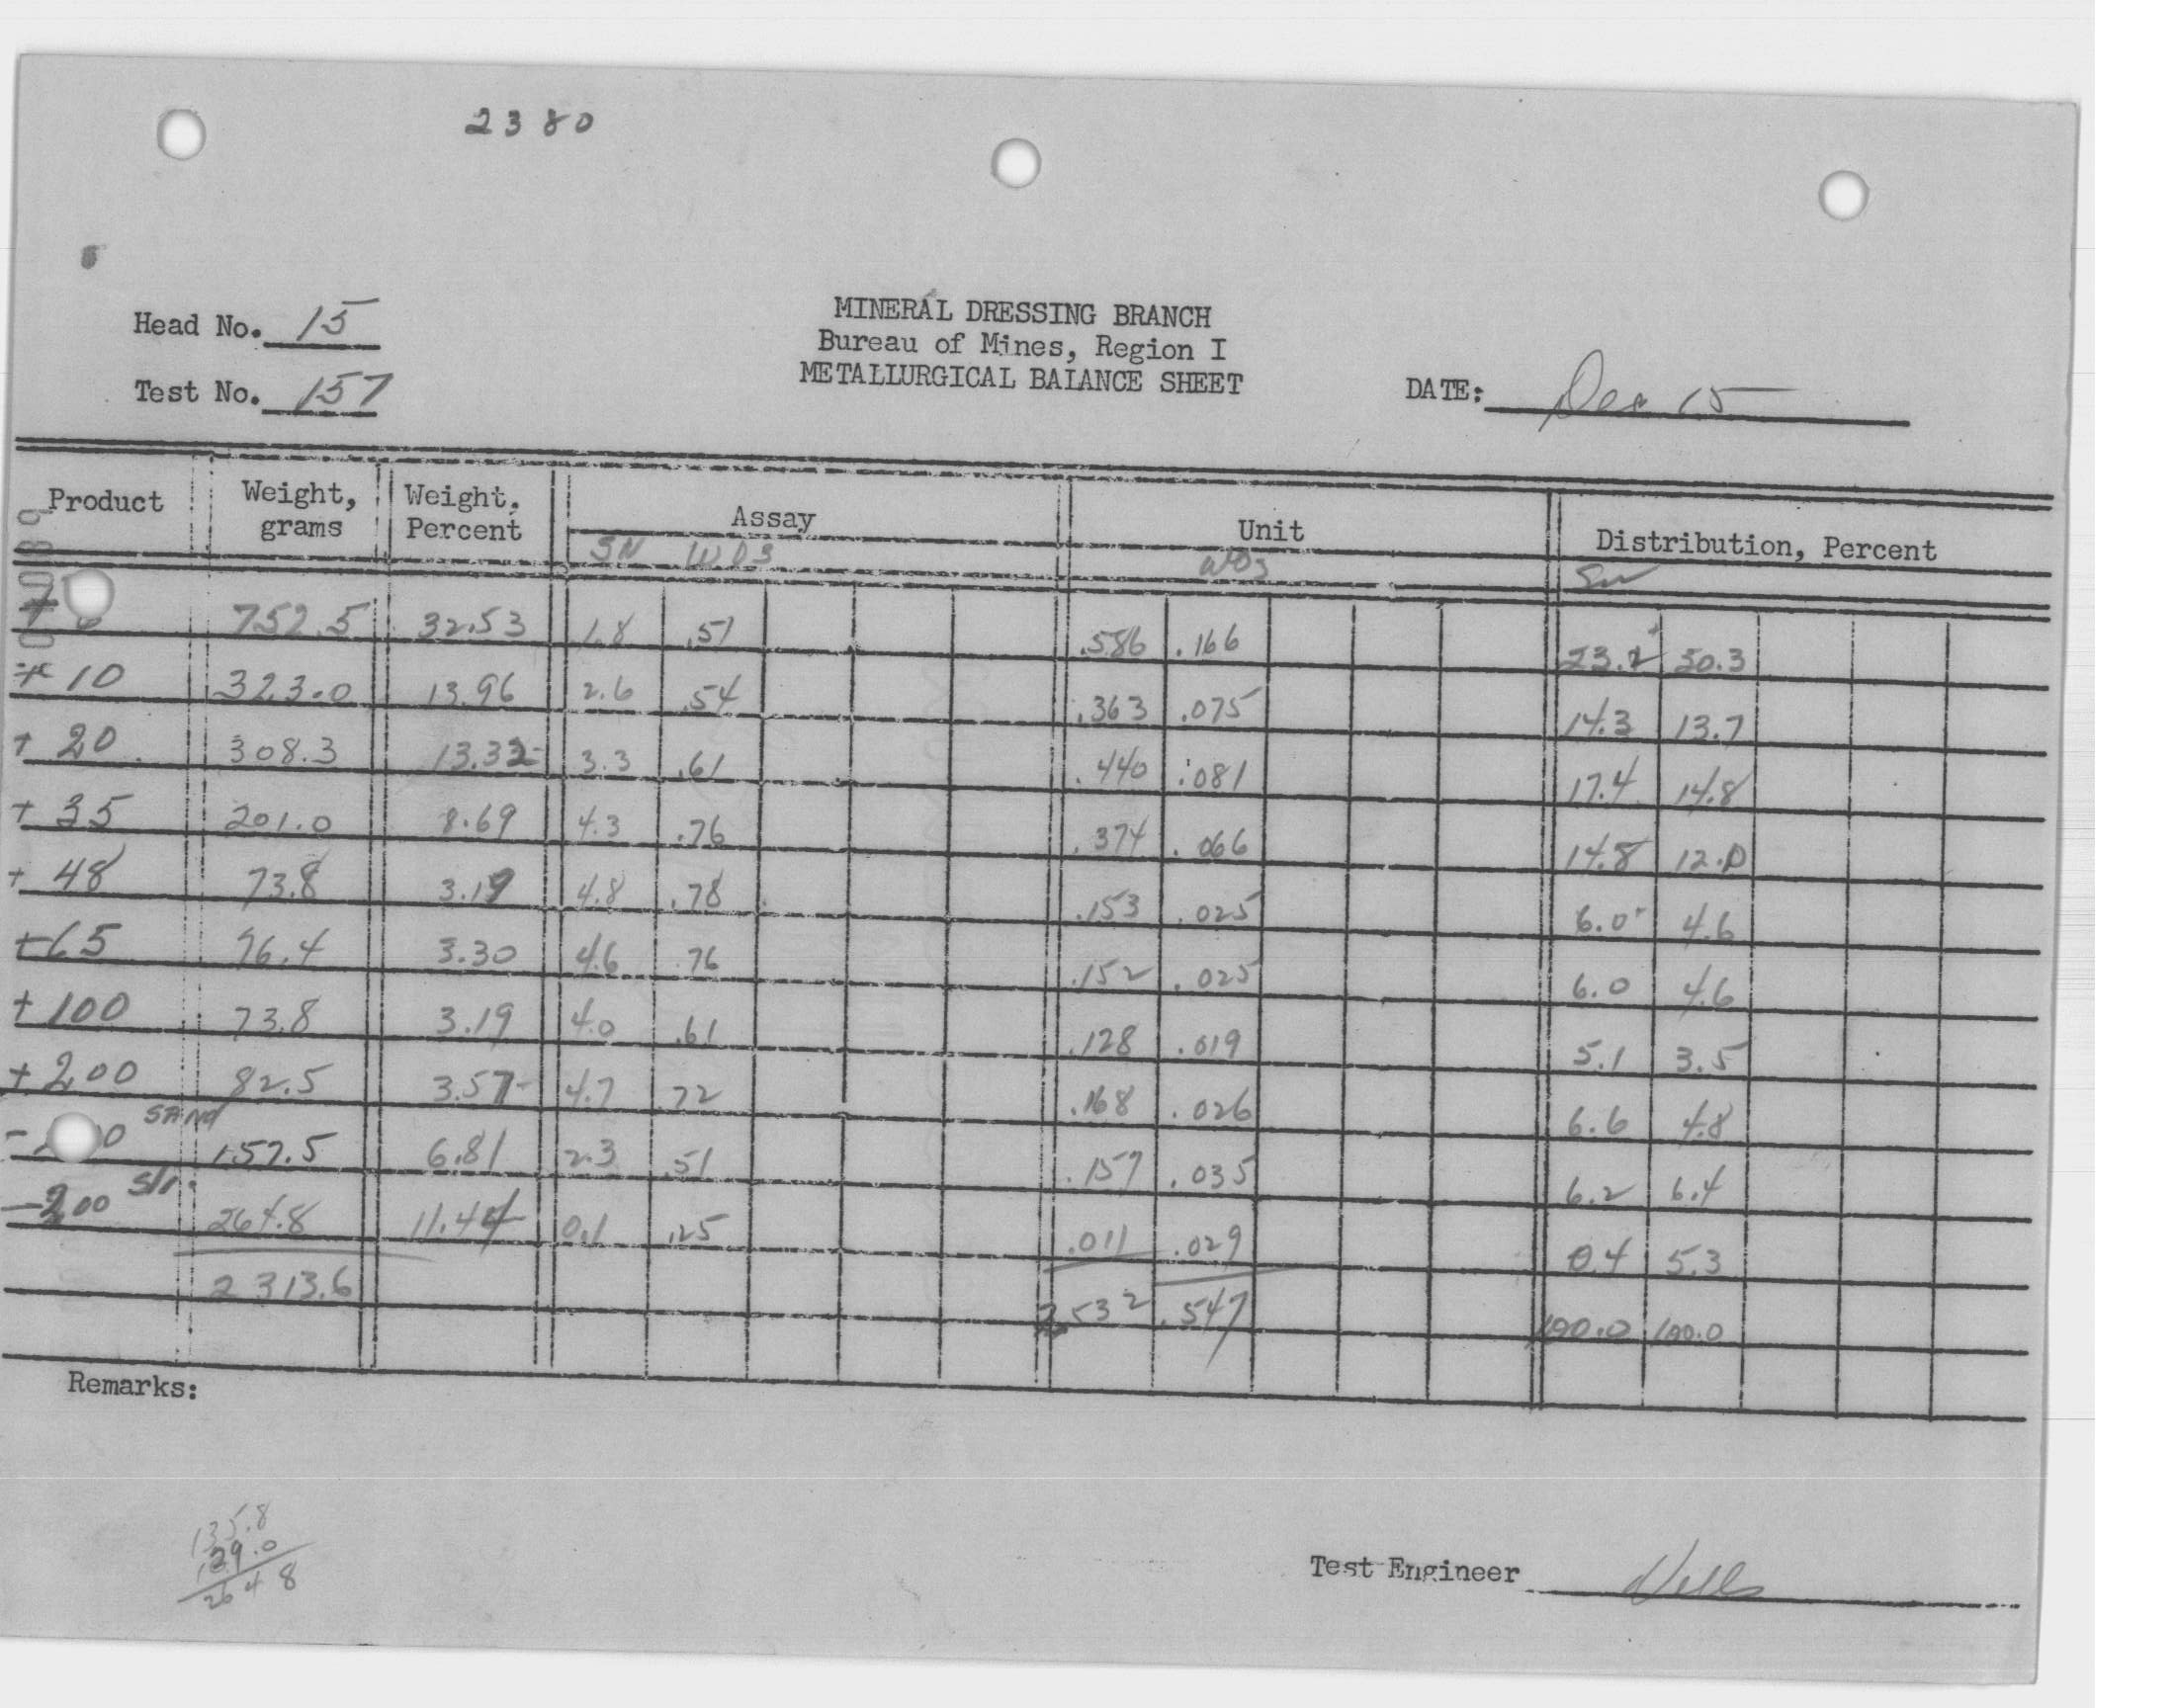 2380
Head No. 15
MINERAL DRESSING BRANCH
Bureau of Mines, Region I
METALLURGICAL BALANCE SHEET
Test No. 157
DATE: Dec 15
Product Weight, grams Weight, Percent Assay Unit Distribution, Percent
SN WO3 WO3 Sn
752.5 32.53 1.8 .51 .586 .166 23.2 30.3
+ 10 323.0 13.96 2.6 .54 .363 .075 14.3 13.7
+ 20 308.3 13.32 3.3 .61 .440 .081 17.4 14.8
+ 35 201.0 8.69 4.3 .76 .374 .066 14.8 12.0
+ 48 73.8 3.19 4.8 .78 .153 .025 6.0 4.6
+65 76.4 3.30 4.6 .76 .152 .025 6.0 4.6
+ 100 73.8 3.19 4.0 .61 .128 .019 5.1 3.5
+ 200 82.5 3.57 4.7 .72 .168 .026 6.6 4.8
SAND 157.5 6.81 2.3 .51 .157 .035 6.2 6.4
-200 Sli. 264.8 11.44 0.1 .25 .011 .029 0.4 5.3
2313.6 2.532 .547 100.0 100.0
Remarks:
135.8
129.0
264 8
Test Engineer